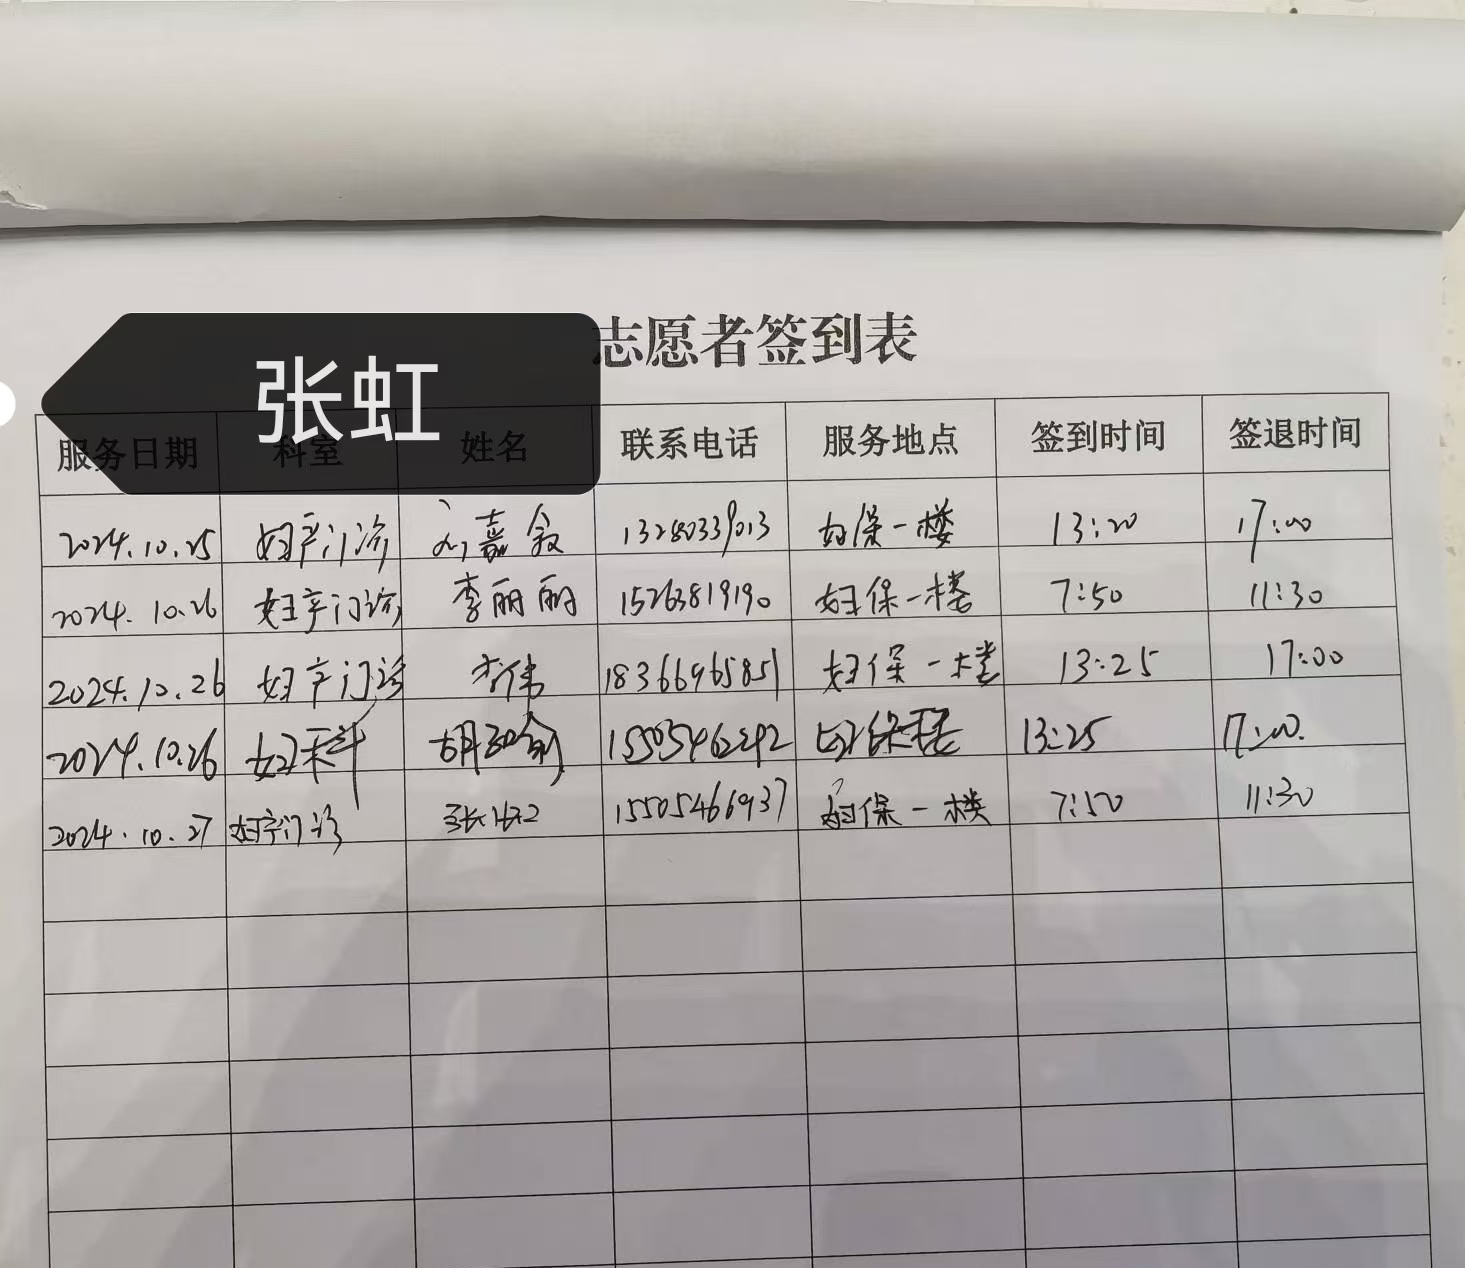 志愿者签到表
张虹
服务日期 科室 姓名 联系电话 服务地点 签到时间 签退时间
2024.10.25 妇产门诊 刘嘉 13280339013 妇保一楼 13:20 17:00
2024.10.26 妇产门诊 李丽丽 15263819190 妇保一楼 7:50 11:30
2024.10.26 妇产门诊 李伟 18366965851 妇保一楼 13:25 17:00
2024.10.26 妇科 胡 15505462292 妇保一楼 13:25 17:00
2024.10.27 妇产门诊 张虹 15505466937 妇保一楼 7:50 11:30